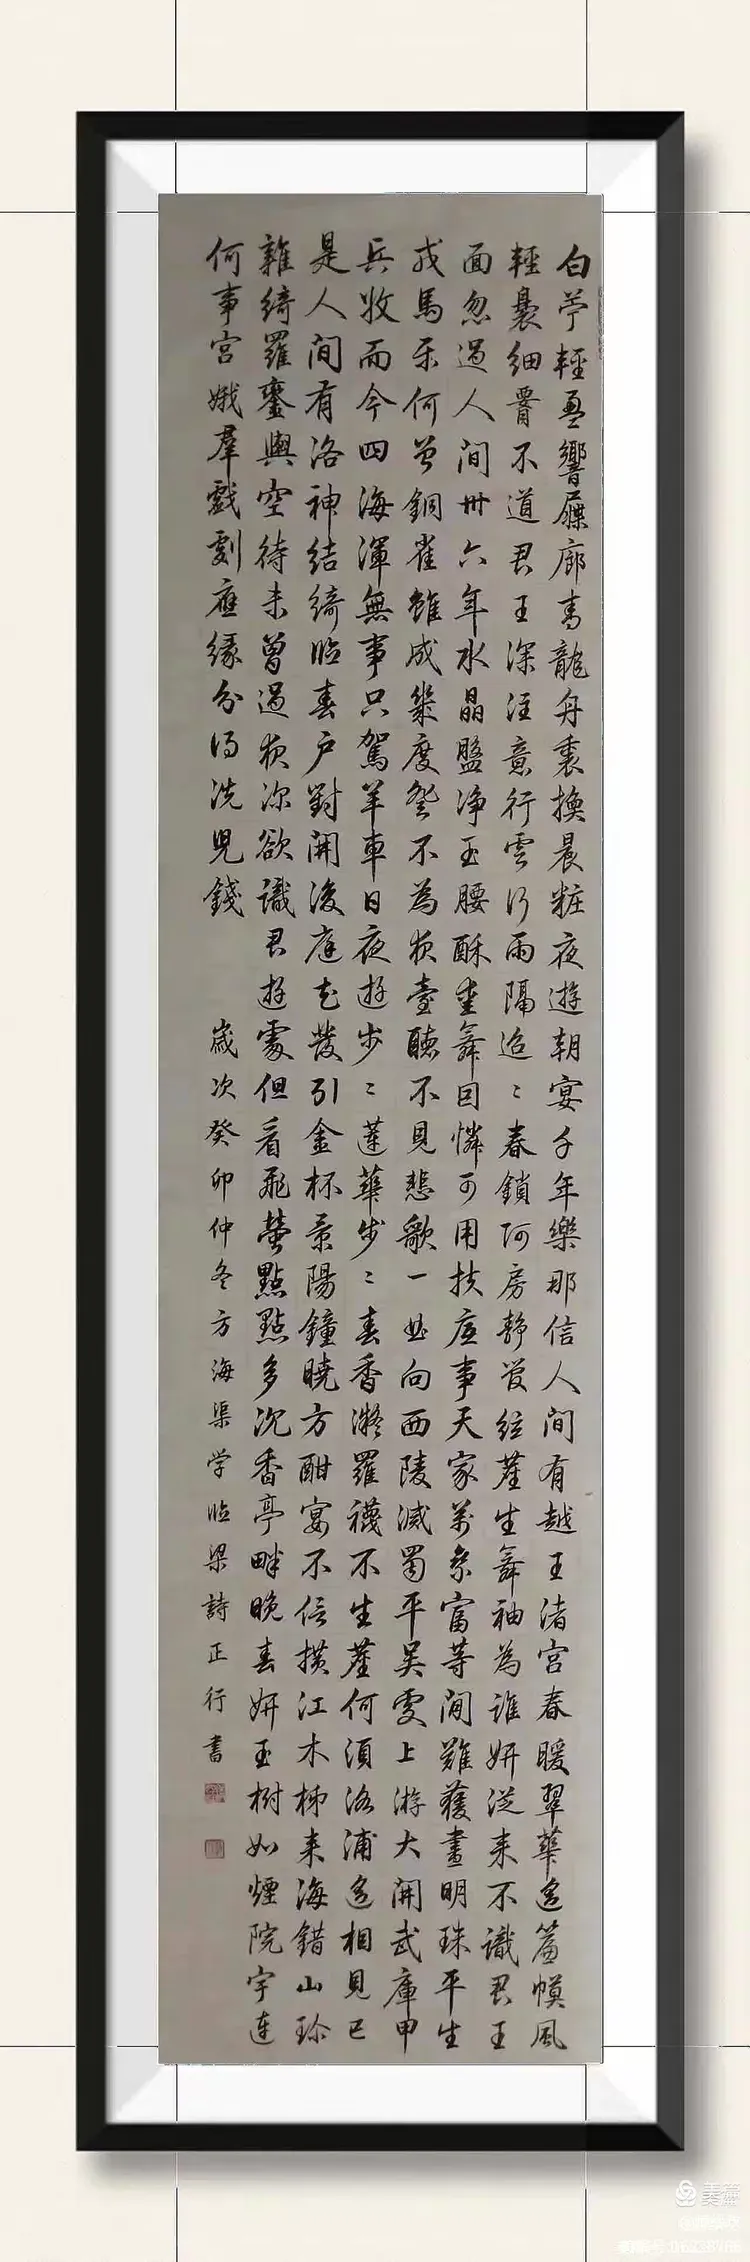 白苧輕盈響屧廊青龍舟裏換晨粧夜遊朝宴千年樂那信人間有越王渚宮春暖翠華遙簾幙風
輕裊細腰不道君王深注意行雲行雨隔迢〻春鎖阿房靜管絃塵生舞袖為誰妍從來不識君王
面忽過人間卅六年水晶盤净玉腰酥垂舞回憐可用扶底事天家萬景富等閒難獲畫明珠平生
戎馬樂何曾銅雀雖成幾度登不為夜臺聽不見悲歌一曲向西陵滅蜀平吳更上游大開武庫甲
兵收而今四海渾無事只駕羊車日夜遊步〻蓮華步〻春香凝羅襪不生塵何須洛浦遙相見已
是人間有洛神結綺臨春戶對開後庭花發引金杯景陽鐘曉方酣宴不信橫江木柹来海錯山珍
雜綺羅鑾輿空待未曾過夜深欲識君遊處但看飛螢點點多沉香亭畔晚春妍玉樹如煙院宇連
何事宮娥羣戲劇應緣分得洗兒錢
歲次癸卯仲冬方海渠学临梁詩正行書
美篇